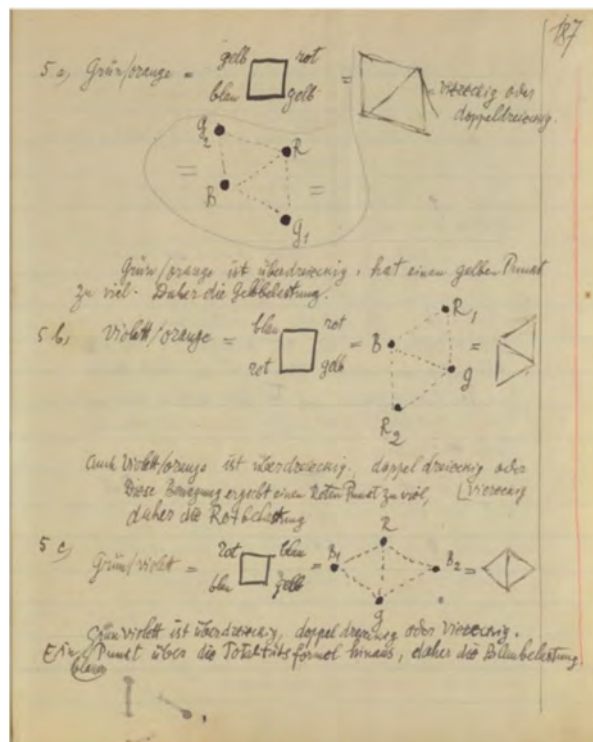 187
5 a, Grün/orange = gelb rot
blau gelb = = viereckig oder
doppeldreieckig.
g2 R
= B =
g1
Grün/orange ist überdreieckig, hat einen gelben Punkt
zu viel. Daher die Gelbbelastung.
5 b, Violett/orange = blau rot
rot gelb = B R1 g R2 =
Auch Violett/orange ist überdreieckig, doppeldreieckig oder
Diese Bewegung ergibt einen Roten Punkt zu viel, viereckig
daher die Rotbelastung
5 c, Grün/violett = Rot blau
blau gelb = B1 R B2 g =
Grünviolett ist überdreieckig, doppeldreieckig oder Viereckig.
Ein Punkt über die Totalitätsformel hinaus, daher die Blaubelastung
blauer